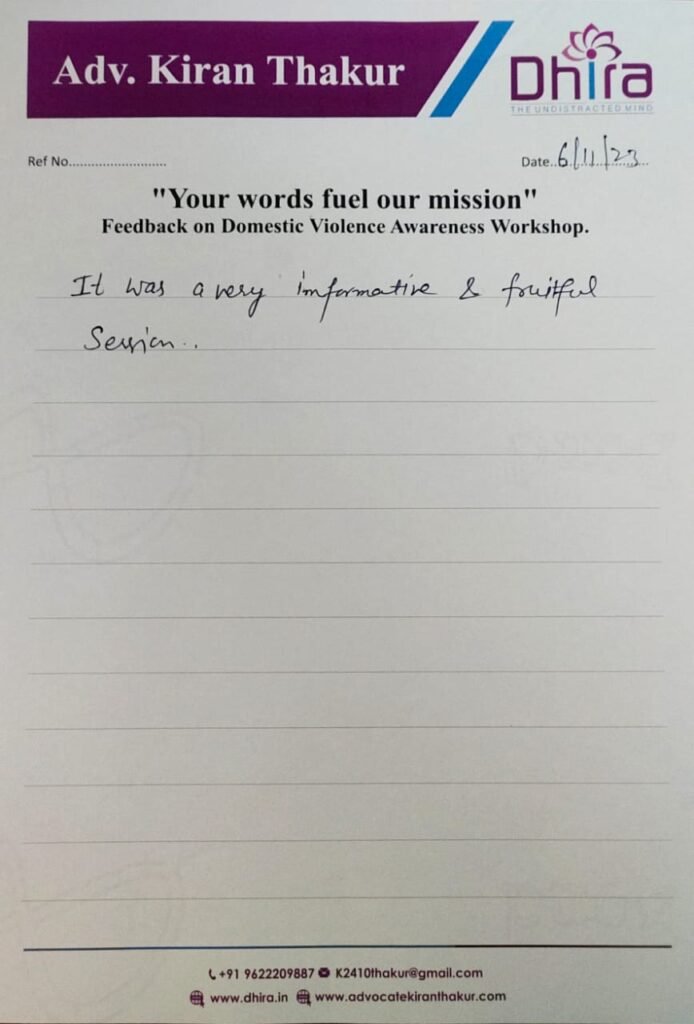 Adv. Kiran Thakur
Dhira
THE UNDISTRACTED MIND
Ref No...........................
Date..6/11/23...
"Your words fuel our mission"
Feedback on Domestic Violence Awareness Workshop.
It was a very informative & fruitful
Session..
+91 9622209887 K2410thakur@gmail.com
www.dhira.in www.advocatekiranthakur.com